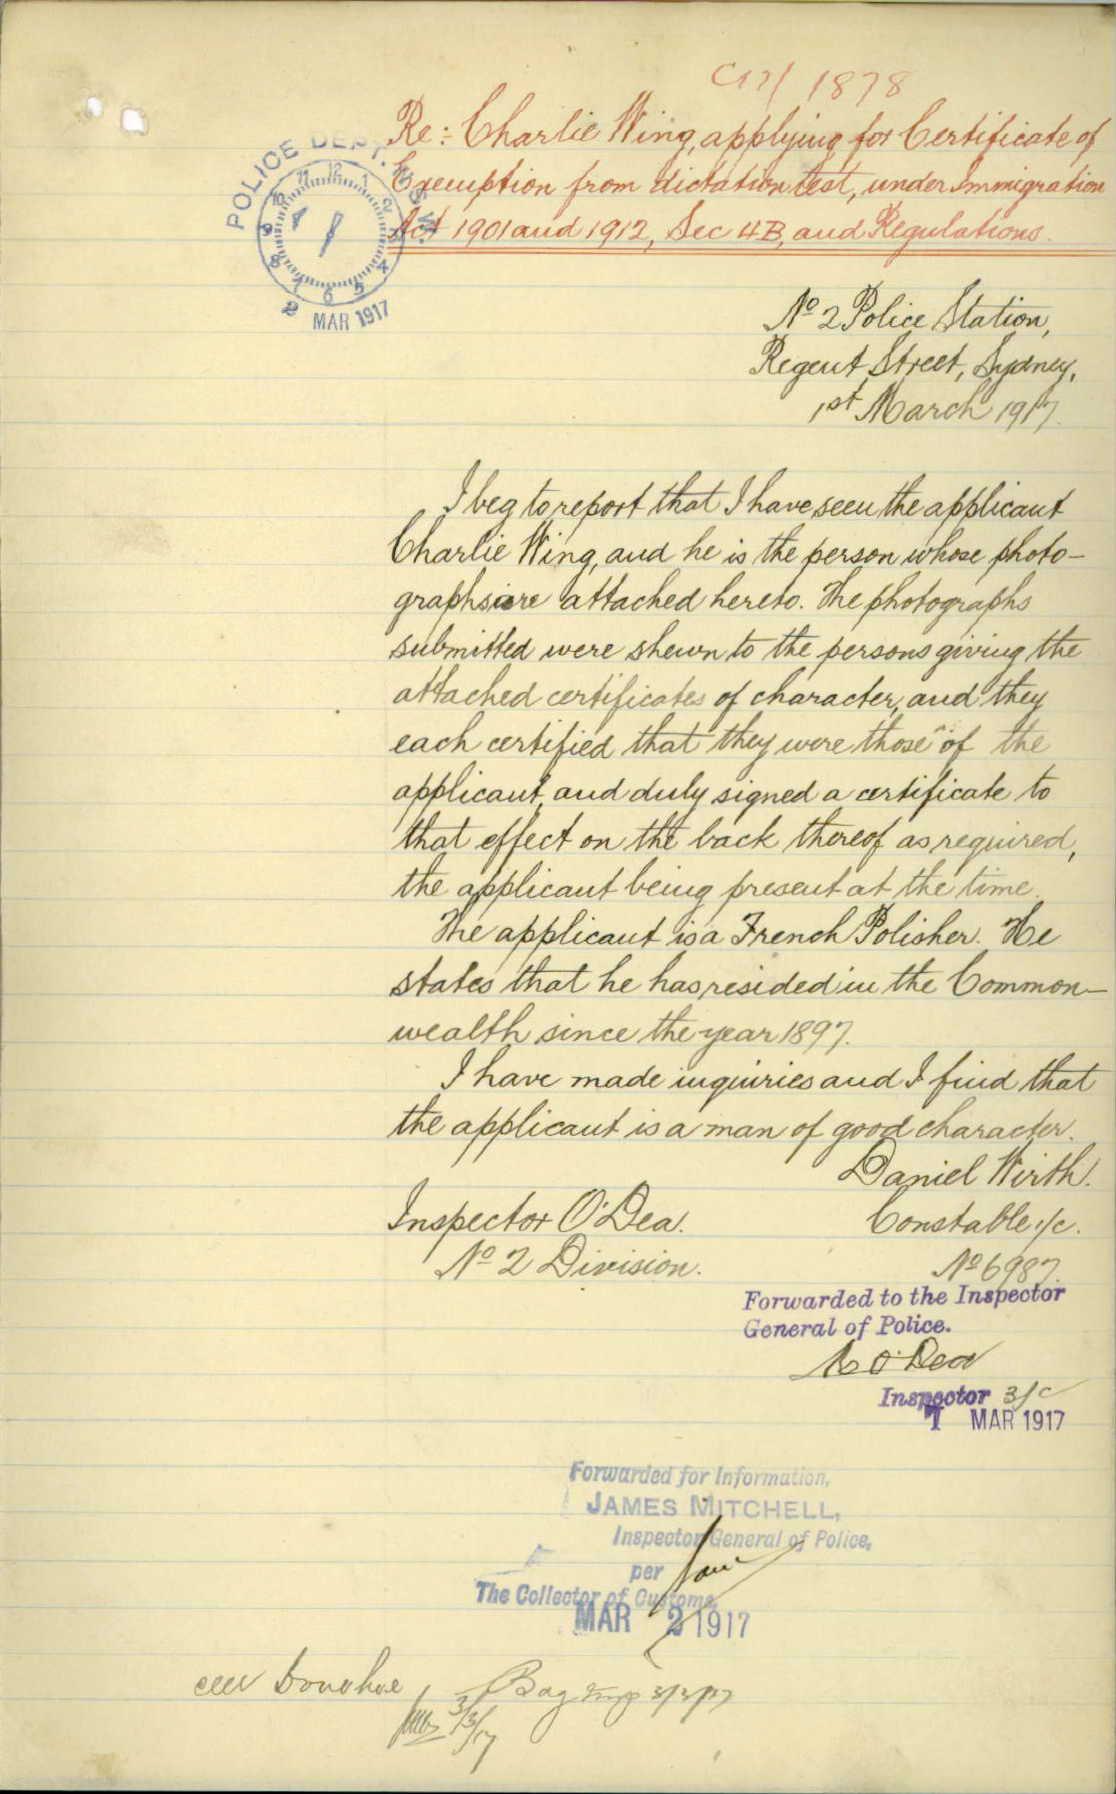 C17/1878
Re:- Charlie Wing, applying for Certificate of
Exemption from dictation test, under Immigration
Act 1901 and 1912, Sec 4B, and Regulations.
POLICE DEPT. N.S.W.
12 1 2 4 5 6 7 8 9 10 11
2 MAR 1917
No 2 Police Station,
Regent Street, Sydney,
1st March 1917.
I beg to report that I have seen the applicant
Charlie Wing, and he is the person whose photo-
graphs are attached hereto. The photographs
submitted were shewn to the persons giving the
attached certificates of character, and they
each certified that they were those of the
applicant, and duly signed a certificate to
that effect on the back thereof as required,
the applicant being present at the time.
The applicant is a French Polisher. He
states that he has resided in the Common-
wealth since the year 1897.
I have made inquiries and I find that
the applicant is a man of good character.
Daniel Wirth.
Inspector O'Dea. Constable 1/c.
No 2 Division. No 6987.
Forwarded to the Inspector
General of Police.
O'Dea
Inspector 3/c
1 MAR 1917
Forwarded for Information,
JAMES MITCHELL,
Inspector General of Police,
per
The Collector of Customs,
MAR 2 1917
Donohoe
3/3/17
3/3/17